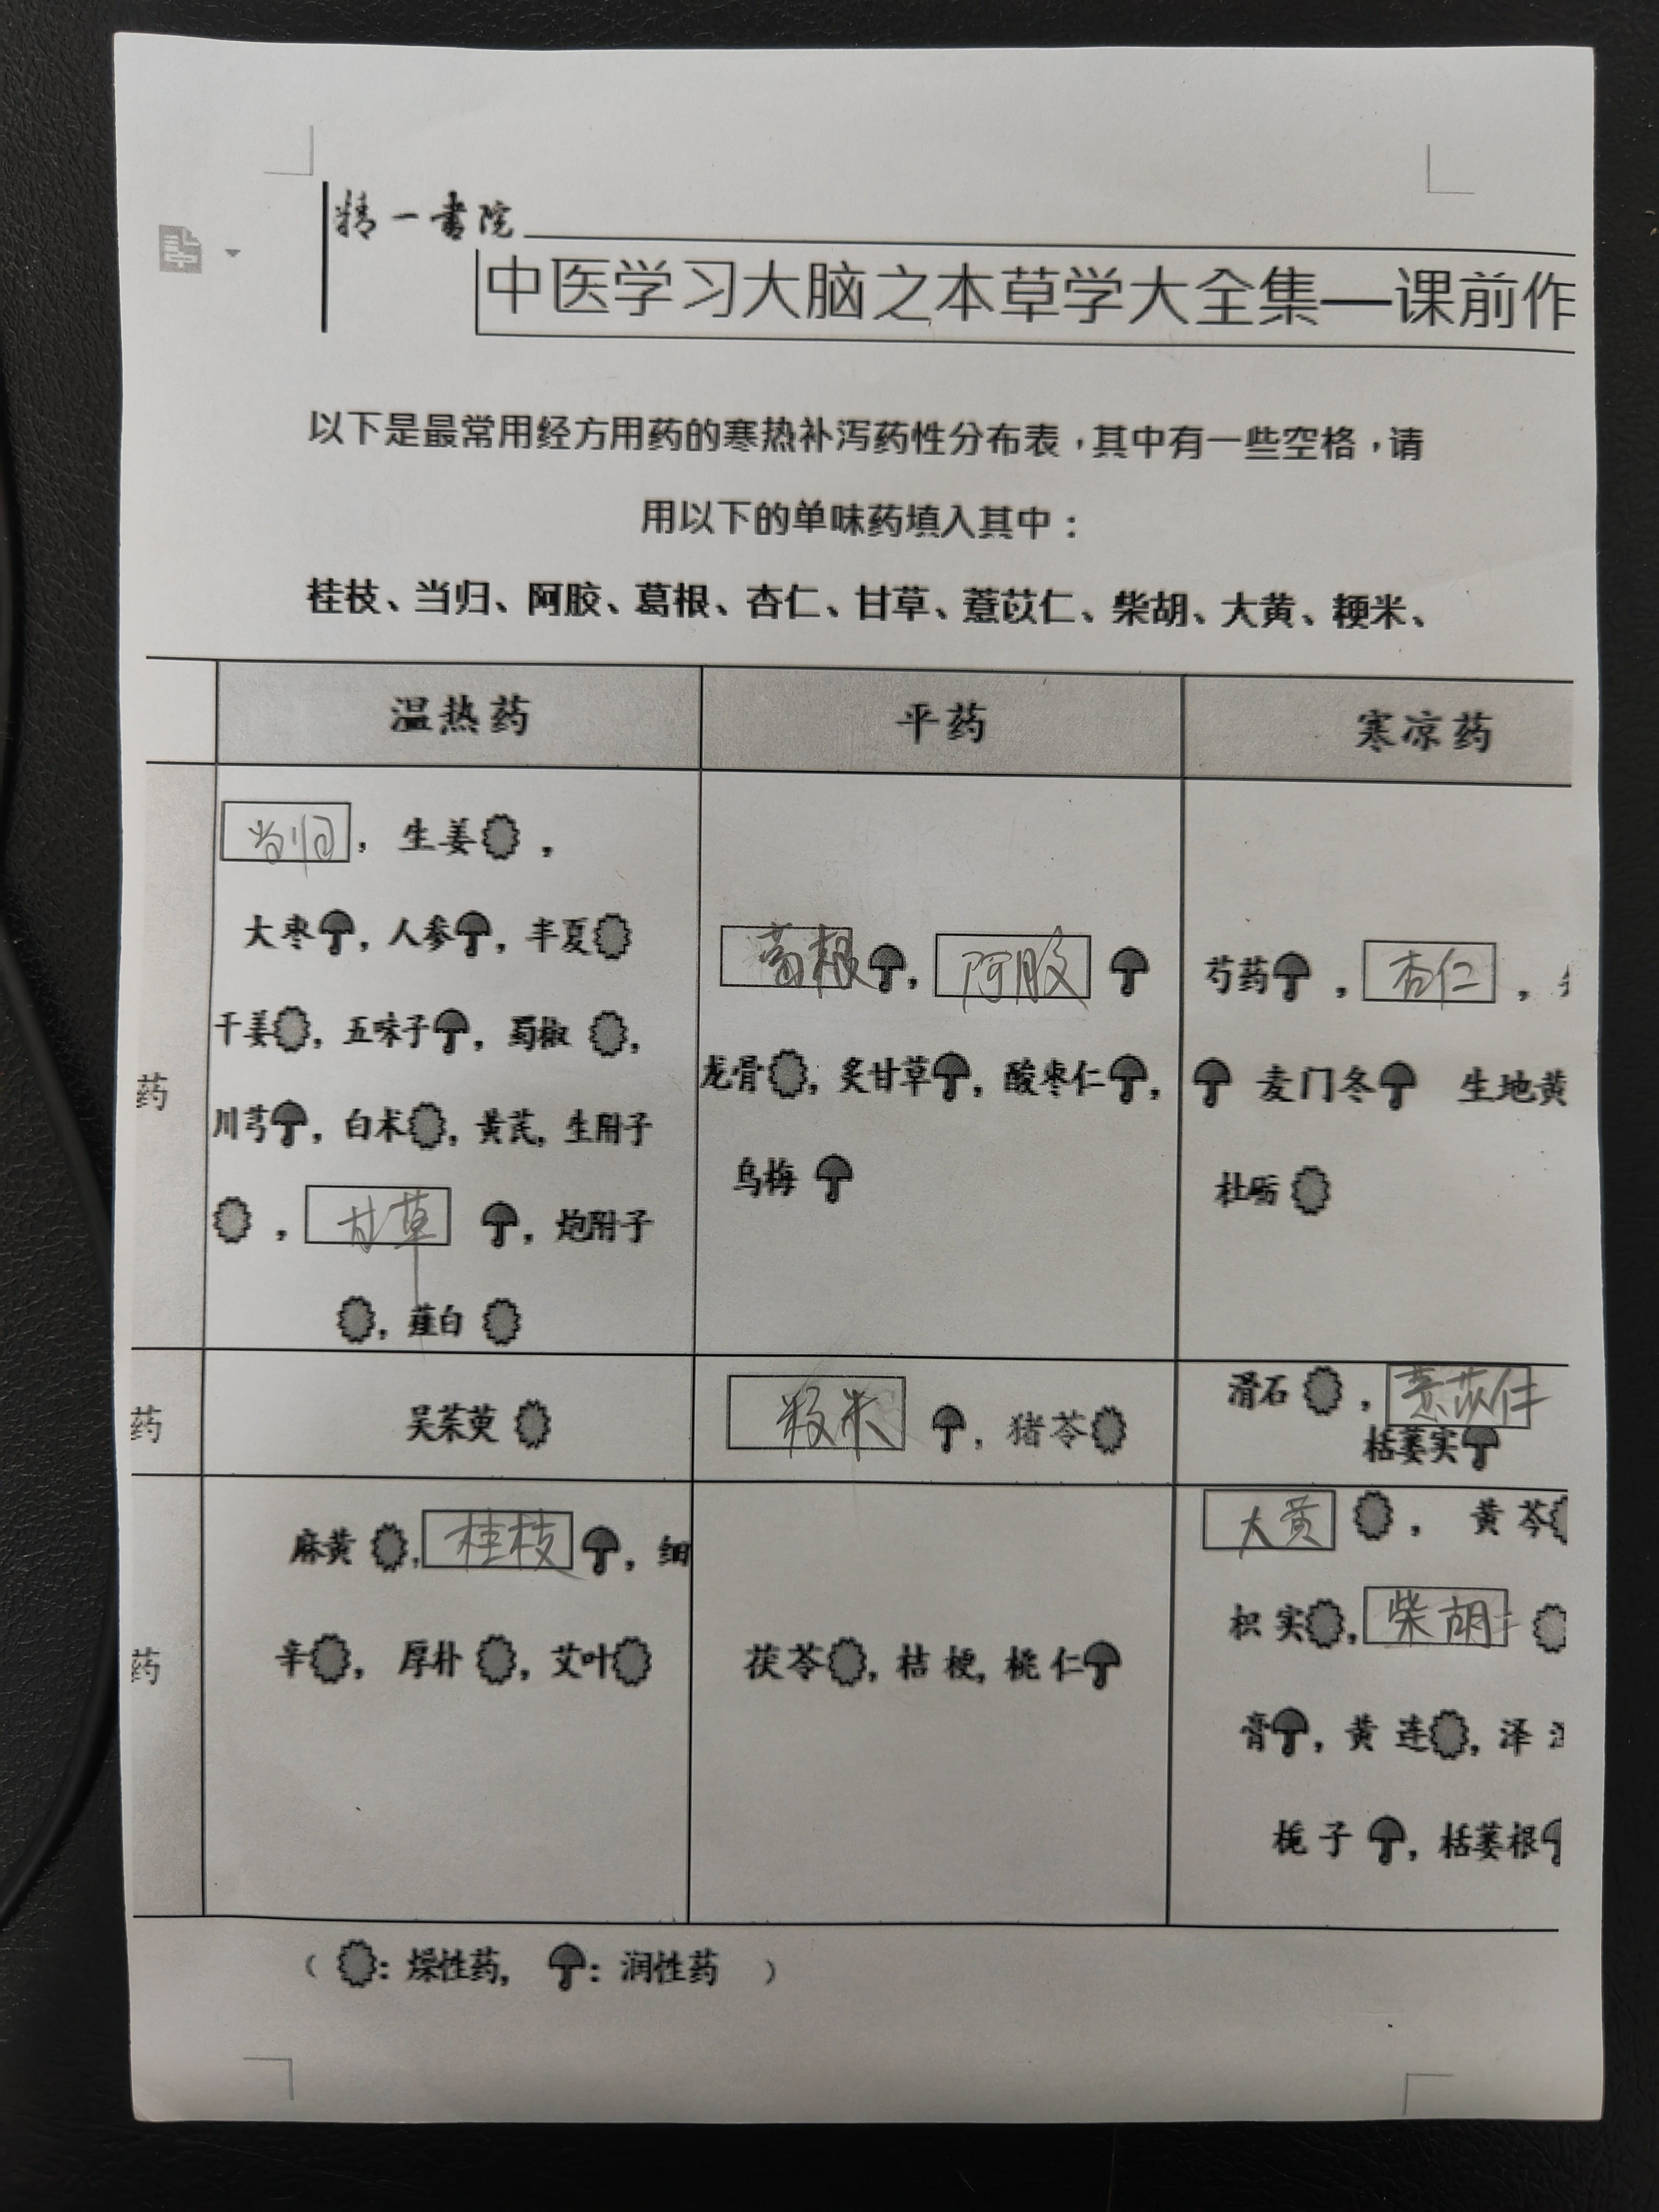 精一書院
中医学习大脑之本草学大全集—课前作
以下是最常用经方用药的寒热补泻药性分布表，其中有一些空格，请
用以下的单味药填入其中：
桂枝、当归、阿胶、葛根、杏仁、甘草、薏苡仁、柴胡、大黄、粳米、
温热药
平药
寒凉药
药
当归，生姜，
大枣，人参，半夏
干姜，五味子，蜀椒，
川芎，白术，黄芪，生附子
，甘草，炮附子
，薤白
葛根，阿胶
龙骨，炙甘草，酸枣仁，
乌梅
芍药，杏仁，
麦门冬 生地黄
牡蛎
药
吴茱萸
粳米，猪苓
滑石，薏苡仁
栝蒌实
药
麻黄，桂枝，细
辛，厚朴，艾叶
茯苓，桔梗，桃仁
大黄，黄芩
枳实，柴胡
膏，黄连，泽
栀子，栝蒌根
（：燥性药，：润性药）